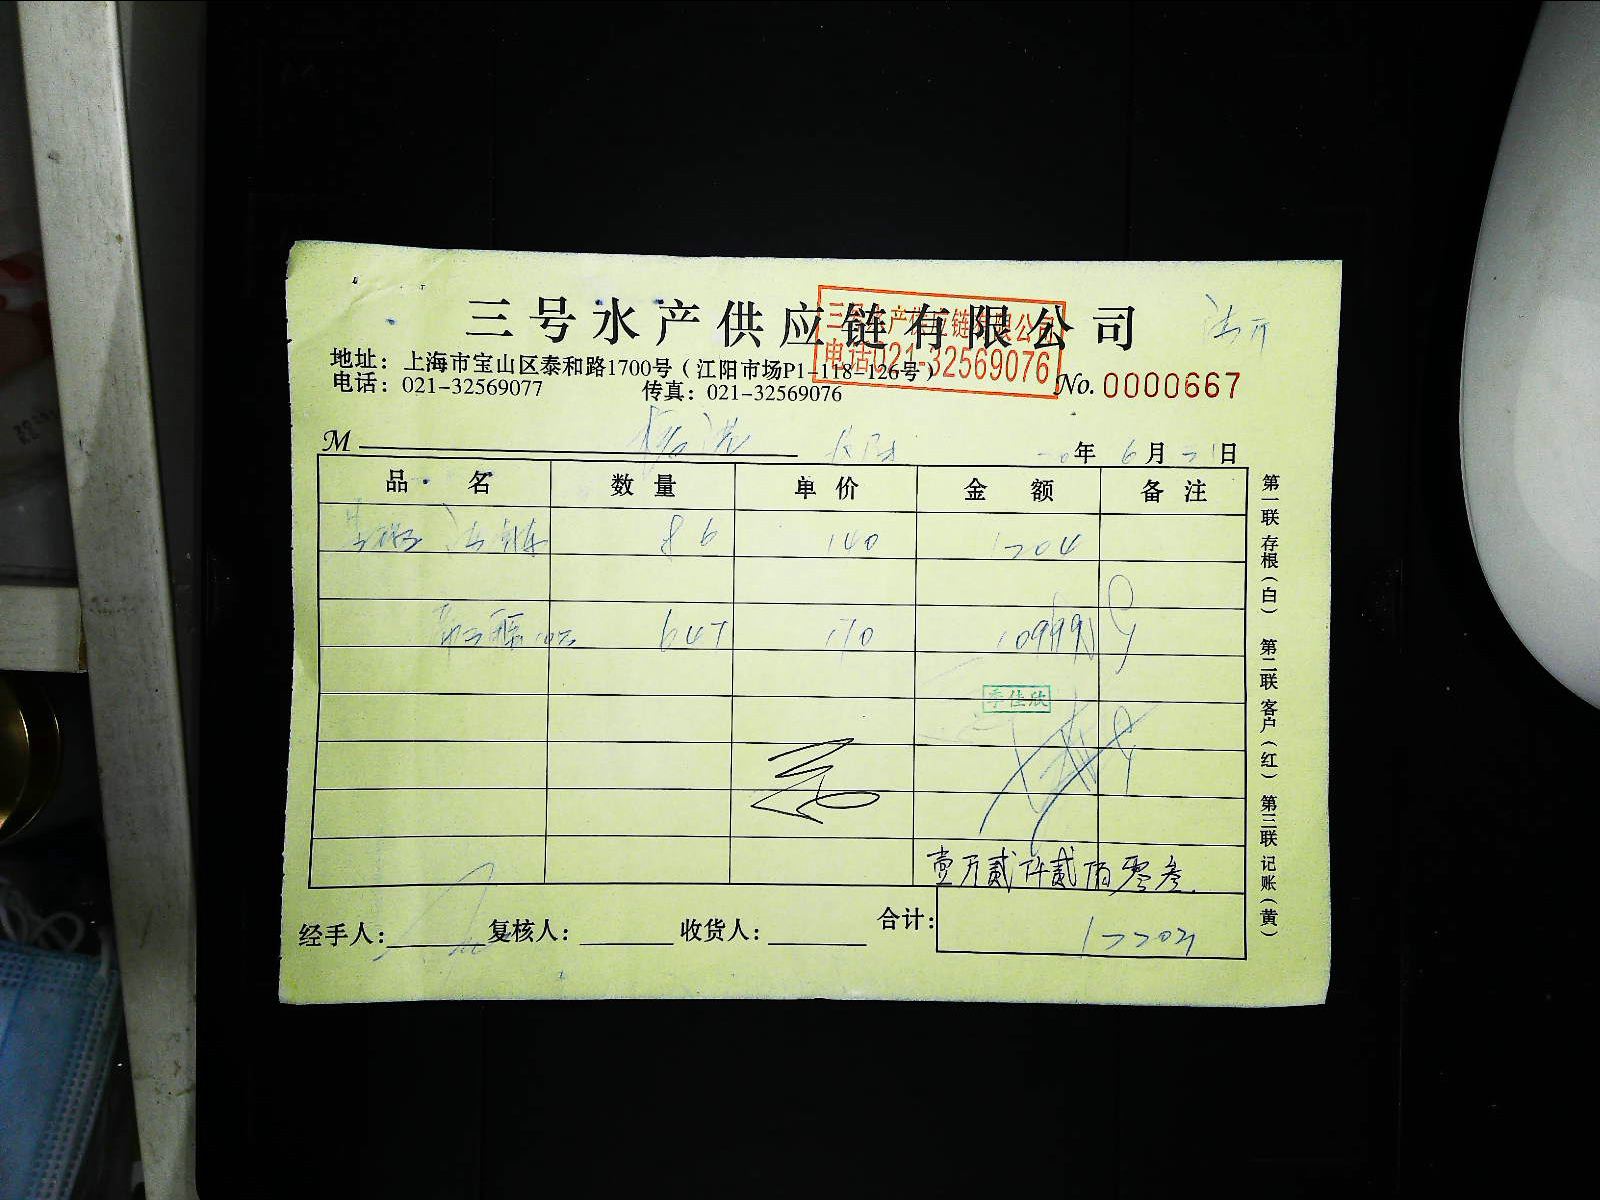 三号水产供应链有限公司
三号水产供应链有限公司
电话021-32569076
地址：上海市宝山区泰和路1700号（江阳市场P1-118-126号）
电话：021-32569077 传真：021-32569076
No. 0000667
M 年 6 月 21 日
品名 数量 单价 金额 备注
86 140 1204
647 170 10999
李佳欣
壹万贰仟贰佰零叁
经手人： 复核人： 收货人： 合计： 12203
第一联 存根（白） 第二联 客户（红） 第三联 记账（黄）